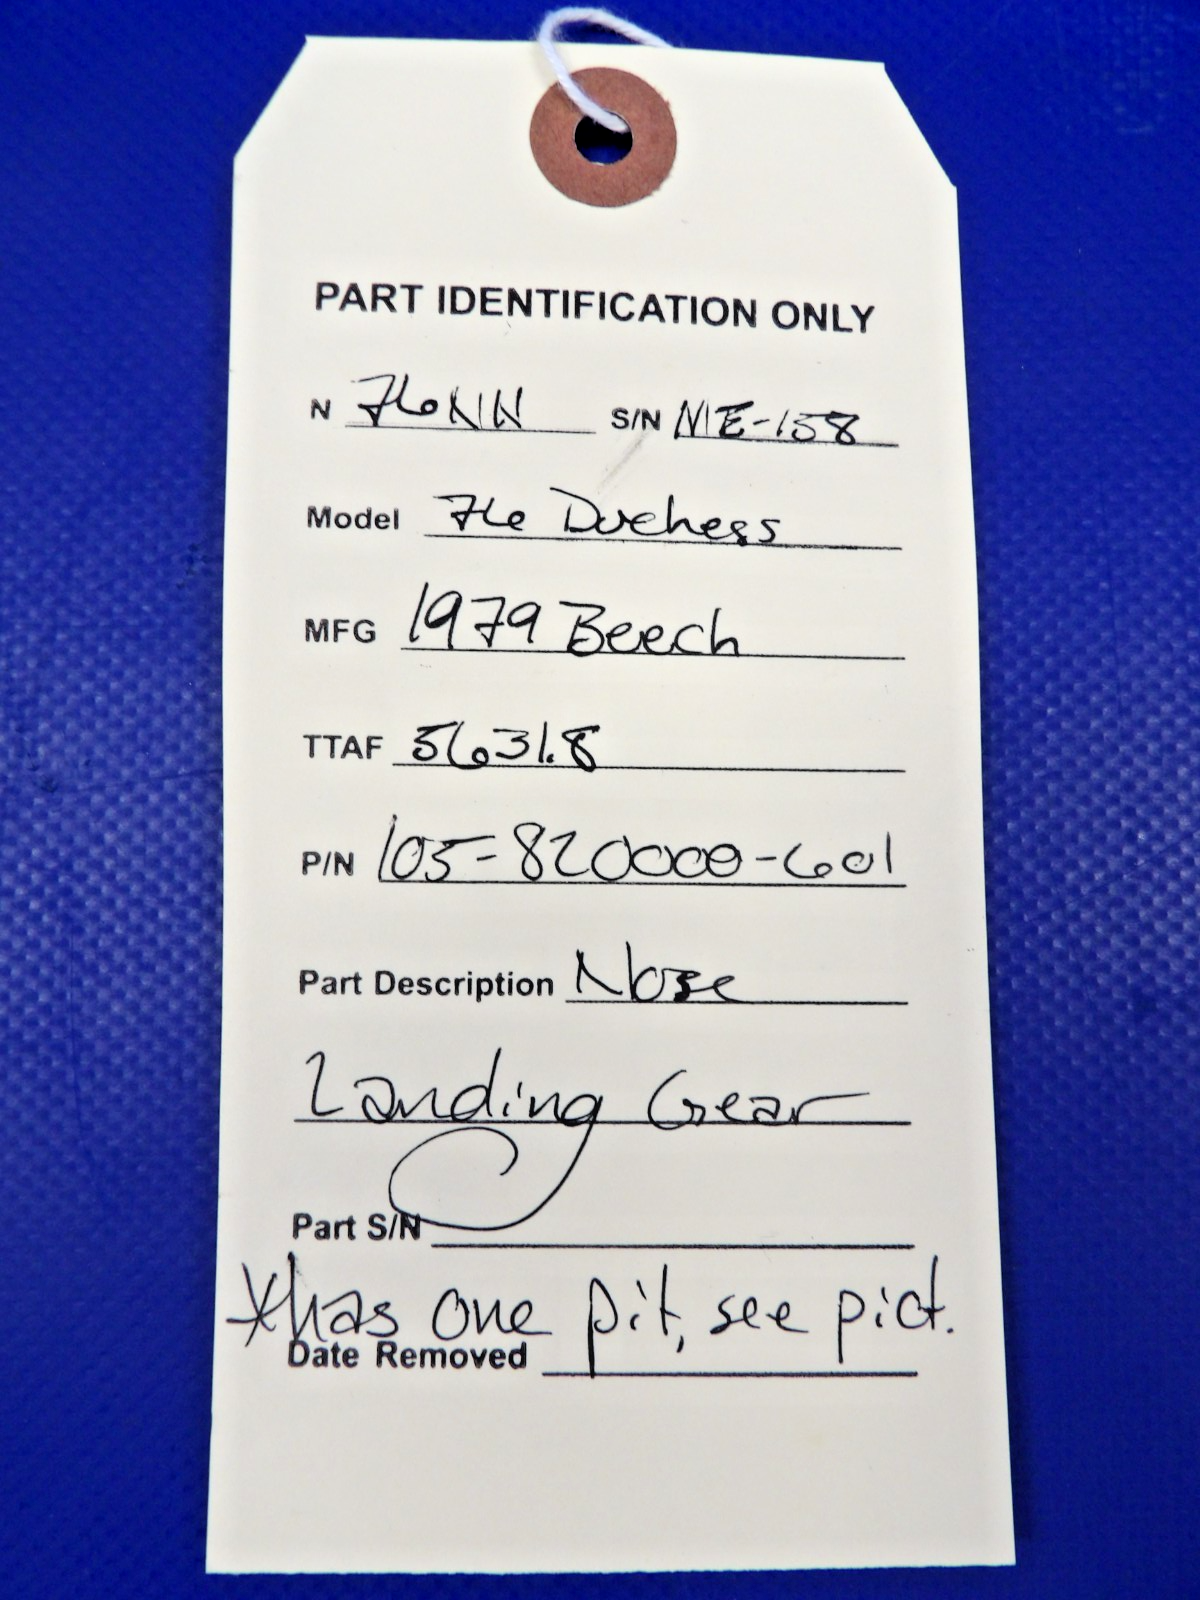 PART IDENTIFICATION ONLY
N 76NN S/N ME-158
Model 76 Duchess
MFG 1979 Beech
TTAF 5631.8
P/N 105-820000-601
Part Description Nose
Landing Gear
Part S/N
*has one pit, see pict.
Date Removed